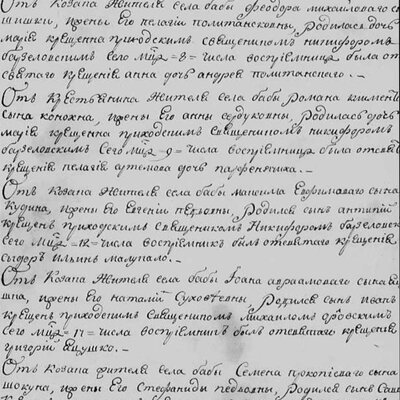 Отъ козака жителя села бабы феодора михайлового сы
шишки, ижены его пелагiи политансковны, родилась дочь
марiя крещенна приходскимъ священикомъ никифоромъ
базеловскимъ сего мца = 8 = числа восприемница была от
святаго крещенiя анна дочь андрея политанского. —
Отъ крестьянина жителя села бабы романа климен
сына коножка, ижены его анны сердуковны, родилась дочь
марiя крещенна приходскимъ священикомъ никифоромъ
базеловскимъ сего мца = 9 = числа восприемница была отсвя
крещенiя пелагiя артемова дочь парфенчика. —
Отъ козака жителя села бабы мануила Евфимового сына
кудина, ижены его Евгенiи педковны, родился сынъ антипiй
крещенъ приходскимъ священикомъ Никифоромъ базеловск
сего мца = 12 = числа восприемникъ былъ отсвятаго крещенiя
сидоръ ильинъ мазупало. —
Отъ козака жителя села бабы Iоана авраамового сына
шка, ижены его наталiи Суховеевны, родился сынъ иванъ
крещенъ приходскимъ священикомъ михаиломъ
сего мца = 17 = числа восприемникъ былъ отсвятаго крещенiя
григорiй ещушко. —
Отъ козака жителя села бабы Семена прокопiевого сына
шокуна, ижены его Стефаниды педковны, родился сынъ